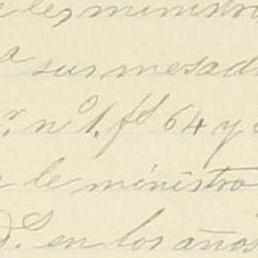 le ministro
a sus mesada
r. nº 1. fd 64 y
le ministro
S. en los años